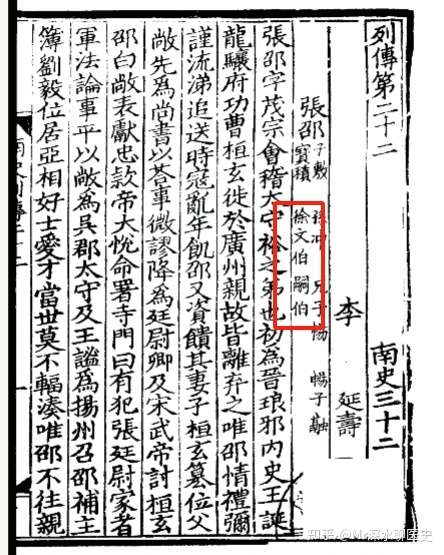 列傳第二十二 南史三十二
李延壽
張邵 子敷 孫沖 兄子暢 暢子融
寶積 徐文伯 嗣伯
張邵字茂宗會稽太守裕之弟也初爲晉琅邪內史王誕
龍驤府功曹桓玄徙於廣州親故皆離弃之唯邵情禮彌
謹流涕追送時寇亂年飢邵又資饋其妻子桓玄篡位父
敞先爲尚書以荅事微謬降爲廷尉卿及宋武帝討桓玄
邵白敞表獻忠款帝大悅命署寺門曰有犯張廷尉家者
軍法論事平以敞爲吳郡太守及王謐爲揚州召邵補主
簿劉毅位居亞相好士愛才當世莫不輻湊唯邵不往親